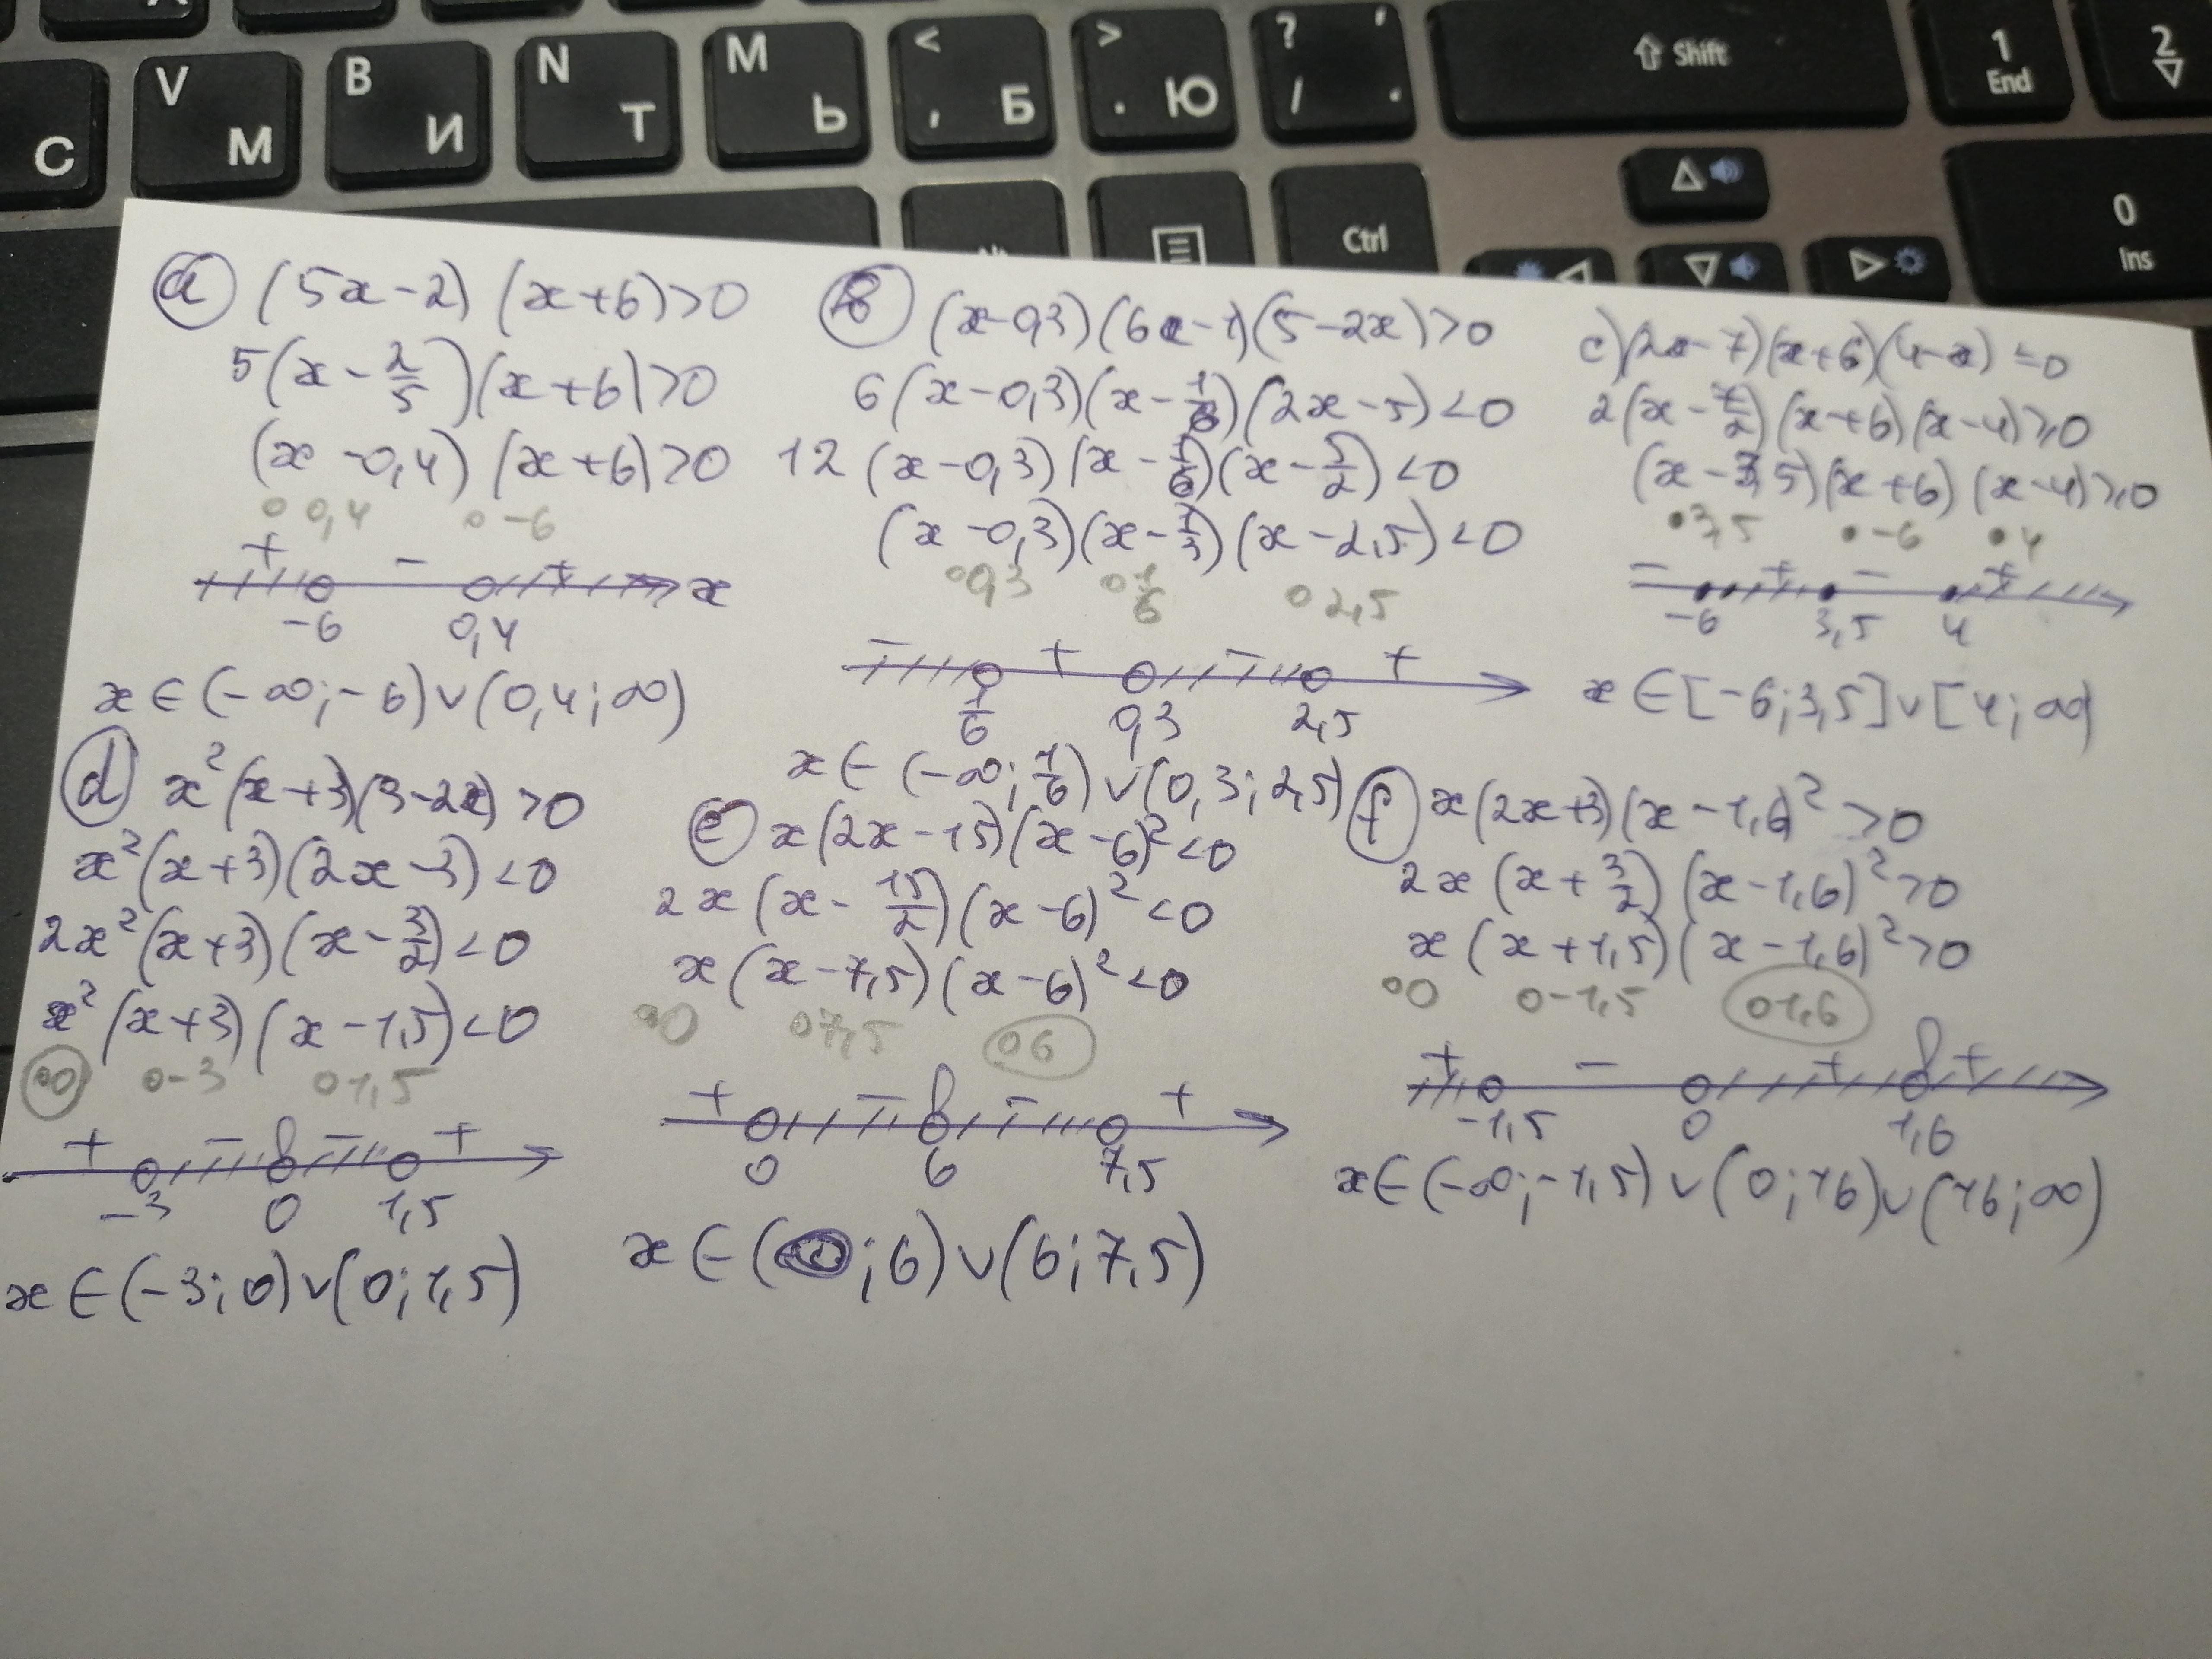 V М
B И
N Т
M Ь
< , Б
> . Ю
? / ' .
⇧ Shift
1 End
2
С
Ctrl
0 Ins
a (5x-2)(x+6)>0
5(x-2/5)(x+6)>0
(x-0,4)(x+6)>0
0,4 -6
+ - +
-6 0,4 x
x∈(-∞;-6)∨(0,4;∞)
b (x-0,3)(6x-1)(5-2x)>0
6(x-0,3)(x-1/6)(2x-5)<0
12(x-0,3)(x-1/6)(x-5/2)<0
(x-0,3)(x-1/3)(x-2,5)<0
0,3 1/6 2,5
- + - +
1/6 0,3 2,5
x∈(-∞;1/6)∨(0,3;2,5)
c)(2x-7)(x+6)(4-x)≤0
2(x-7/2)(x+6)(x-4)≥0
(x-3,5)(x+6)(x-4)≥0
3,5 -6 4
- + - +
-6 3,5 4
x∈[-6;3,5]∨[4;∞)
d x²(x+3)(3-2x)>0
x²(x+3)(2x-3)<0
2x²(x+3)(x-3/2)<0
x²(x+3)(x-1,5)<0
0 -3 1,5
+ - - +
-3 0 1,5
x∈(-3;0)∨(0;1,5)
e x(2x-15)(x-6)²<0
2x(x-15/2)(x-6)²<0
x(x-7,5)(x-6)²<0
0 7,5 6
+ - - +
0 6 7,5
x∈( ;6)∨(6;7,5)
f x(2x+3)(x-1,6)²>0
2x(x+3/2)(x-1,6)²>0
x(x+1,5)(x-1,6)²>0
0 -1,5 1,6
+ - + +
-1,5 0 1,6
x∈(-∞;-1,5)∨(0;1,6)∨(1,6;∞)